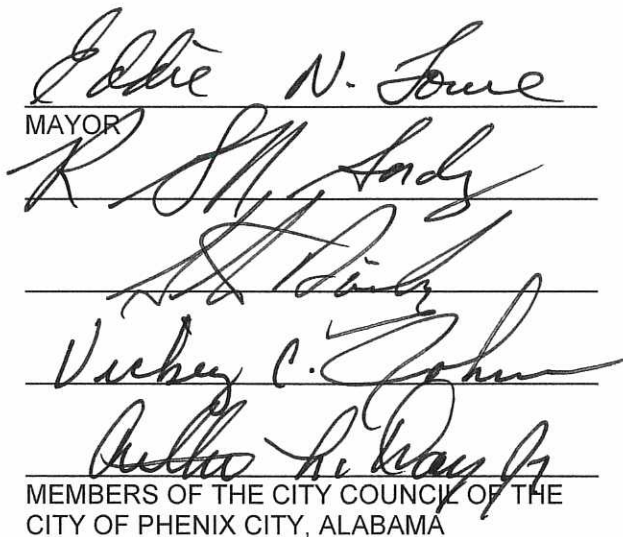 Eddie N. Lowe
MAYOR
R
Vickey C. Johnson
Arthur L. Day Jr
MEMBERS OF THE CITY COUNCIL OF THE
CITY OF PHENIX CITY, ALABAMA